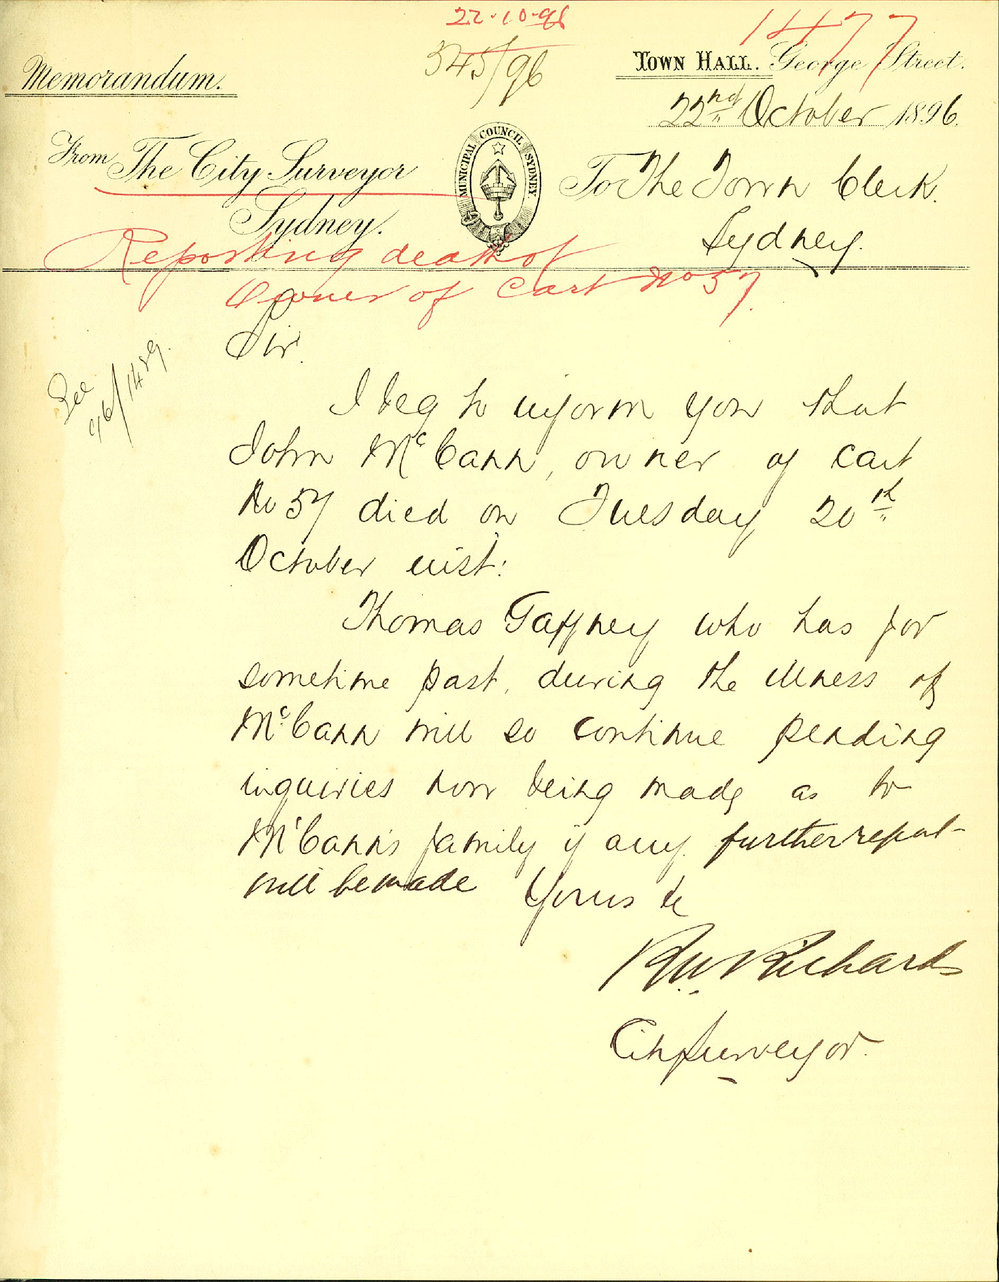 22.10.96
1477
345/96
Memorandum.
TOWN HALL. George Street.
22nd October 1896.
From The City Surveyor
Sydney.
MUNICIPAL COUNCIL SYDNEY.
To The Town Clerk.
Sydney.
Reporting death of
Owner of Cart No 57.
See
96/1489.
Sir.
I beg to inform you that
John McCann, owner of cart
No 57 died on Tuesday 20th
October inst:
Thomas Gaffney who has for
sometime past, during the illness of
McCann will so continue pending
inquiries now being made as to
McCann's family if any. further report
will be made Yours &c
RW. Richards
City Surveyor.